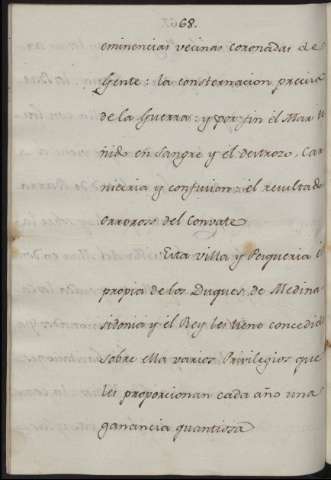 68.
eminencias vecinas coronadas de
Gente: la consternacion precisa
de la Guerra: y por fin el Mar te
ñido en Sangre y el destrozo, Car
niceria y confusion el resultado
orroroso del Convate
Esta villa y Pesqueria es
propia de los Duques de Medina
sidonia y el Rey les tiene concedido
sobre ella varios Privilegios que
les proporcionan cada año una
ganancia quantiosa